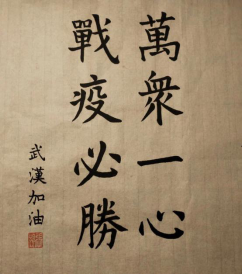 萬眾一心
戰疫必勝
武漢加油